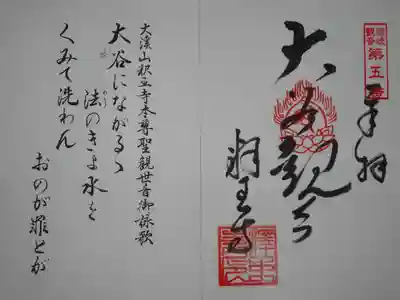 第五番
奉拝
釈王寺
大溪山釈王寺本尊聖観世音御詠歌
大谷にながるゝ
法のきよ水を
くみて洗わん
おのが罪とが